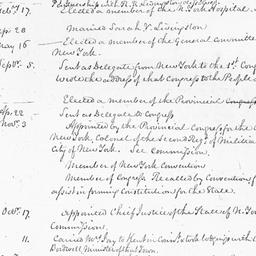 Partnership with R. R. Livingston
Feb: 17. Elected a member of the N. York Hospital
Ap: 28 Married Sarah V. Livingston
May 16 — Elected a member of the General Committee
New York.
Sept: 5. Sent as Delegate from New York to the 1st Cong
wrote the address of that Congress to the People
Elected a member of the Provincial Congress
Ap. 22 — Sent as Delegate to Congress
Nov: 3 Appointed by the Provincial Congress for the
New York, Colonel of the Second Reg: of Militia
City of New York. See Commission.
Member of New York Convention
Member of Congress Recalled by Convention
assist in forming Constitution for the State.
Oct: 17 Appointed Chief Justice of the State of N. York
Commission.
11. Carried Mrs Jay to Kent in Connecticut with